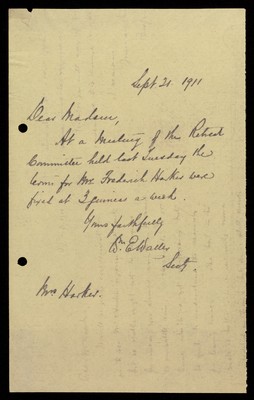 Sept 21 1911
Dear Madam,
At a Meeting of the Retreat
Committee held last Tuesday the
terms for Mr. Frederick Harker were
fixed at 3 guineas a week.
Yrs faithfully
Secty.
Mrs Harker.